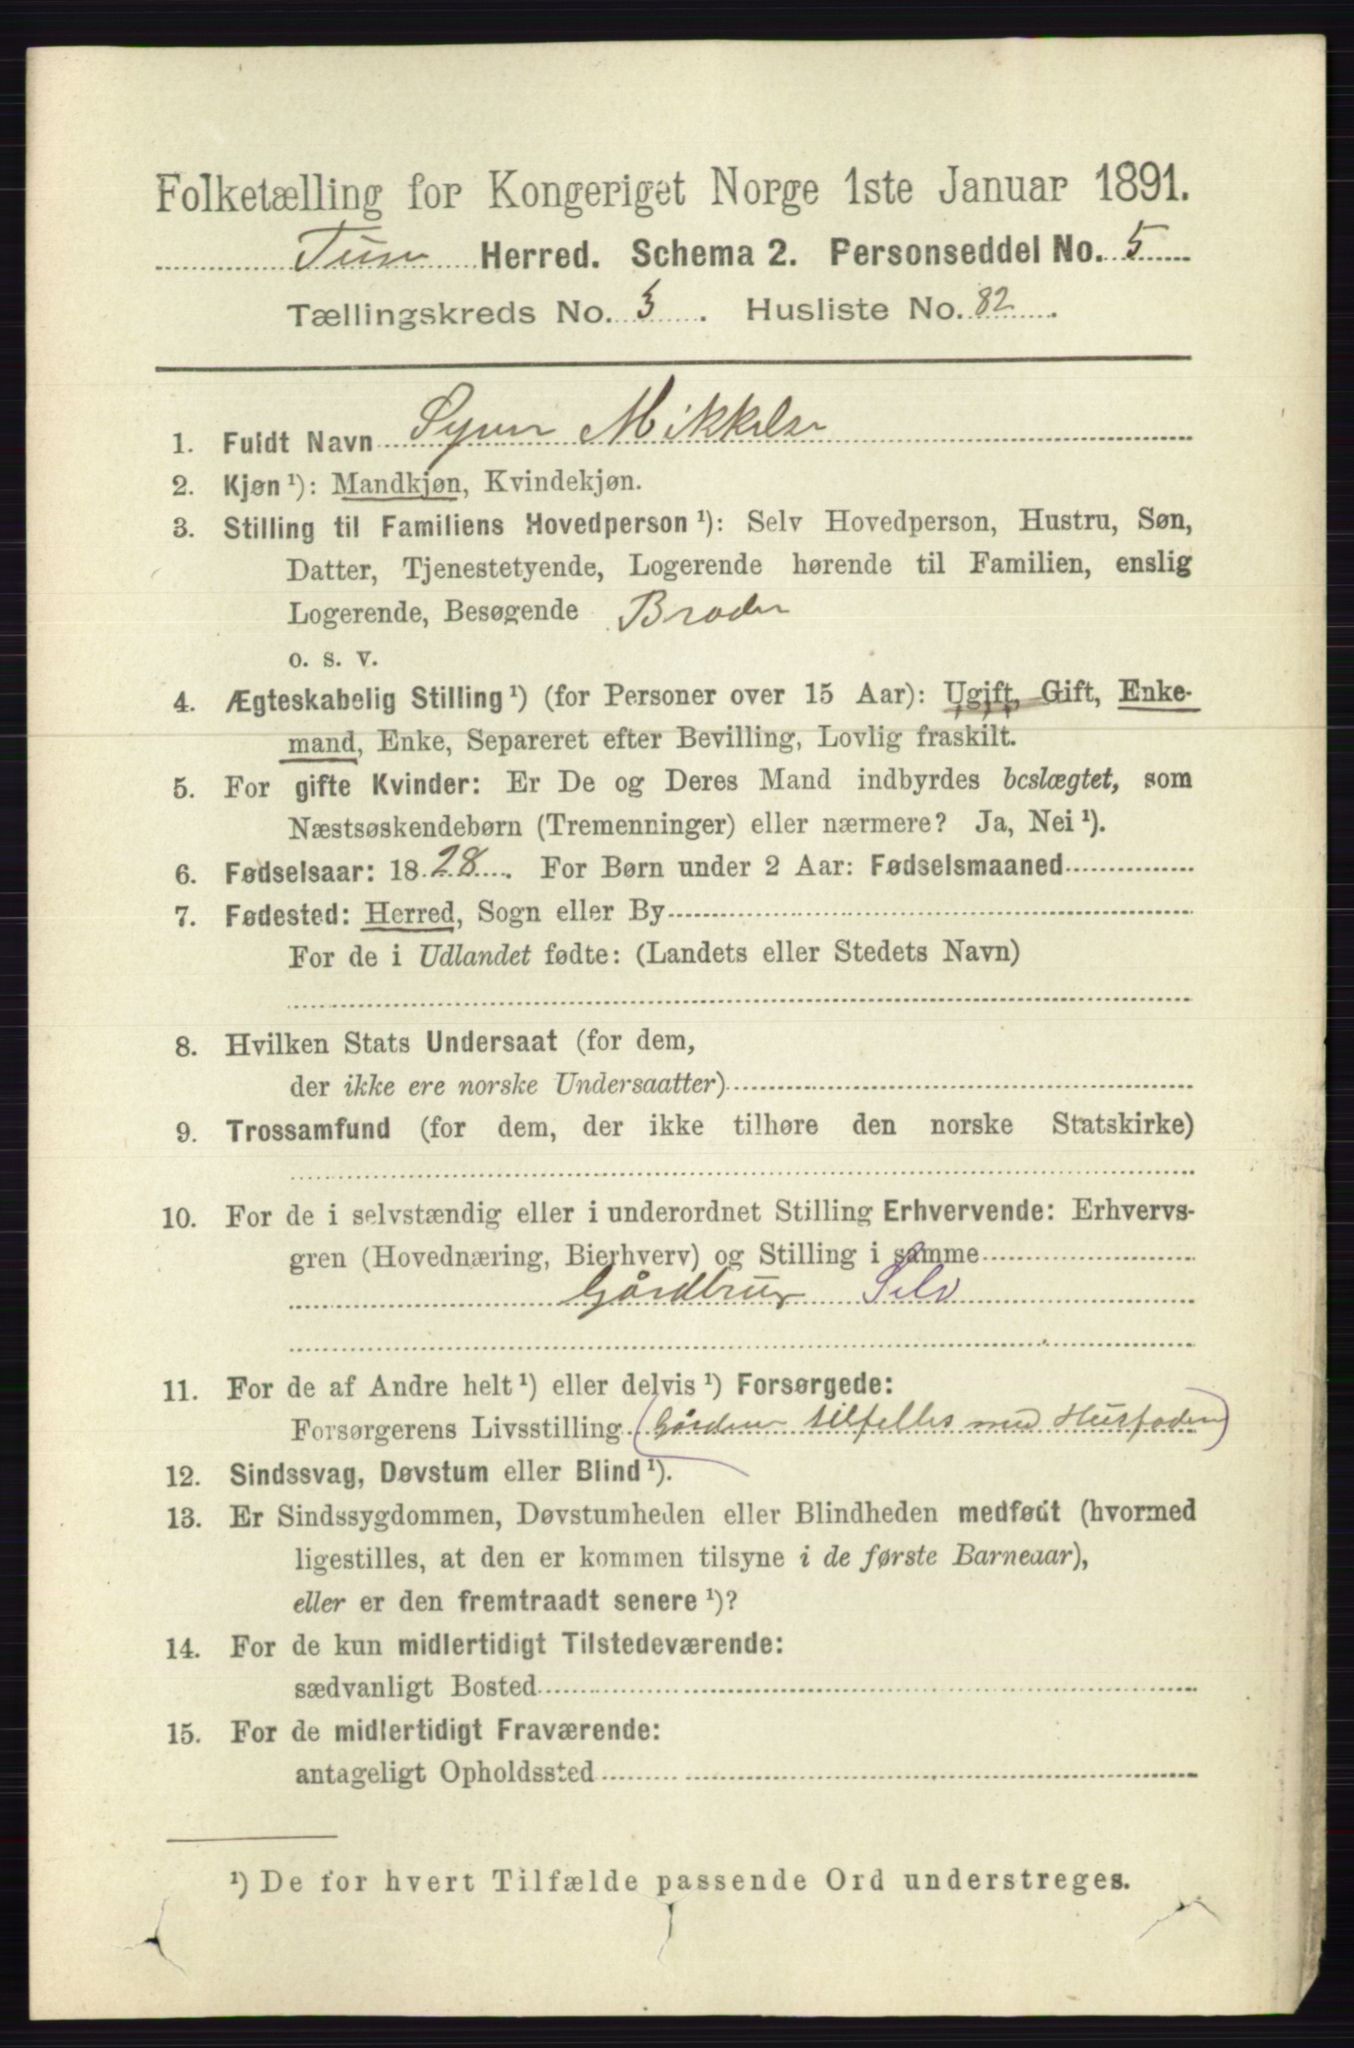 Folketælling for Kongeriget Norge 1ste Januar 1891.
Tune Herred. Schema 2. Personseddel No. 5
Tællingskreds No. 3. Husliste No. 82.
1. Fuldt Navn Syver Mikkelsen
2. Kjøn¹): Mandkjøn, Kvindekjøn.
3. Stilling til Familiens Hovedperson¹): Selv Hovedperson, Hustru, Søn,
Datter, Tjenestetyende, Logerende hørende til Familien, enslig
Logerende, Besøgende Broder
o. s. v.
4. Ægteskabelig Stilling¹) (for Personer over 15 Aar): Ugift, Gift, Enke-
mand, Enke, Separeret efter Bevilling, Lovlig fraskilt.
5. For gifte Kvinder: Er De og Deres Mand indbyrdes beslægtet, som
Næstsøskendebørn (Tremenninger) eller nærmere? Ja, Nei¹).
6. Fødselsaar: 1828. For Børn under 2 Aar: Fødselsmaaned
7. Fødested: Herred, Sogn eller By
For de i Udlandet fødte: (Landets eller Stedets Navn)
8. Hvilken Stats Undersaat (for dem,
der ikke ere norske Undersaatter)
9. Trossamfund (for dem, der ikke tilhøre den norske Statskirke)
10. For de i selvstændig eller i underordnet Stilling Erhvervende: Erhvervs-
gren (Hovednæring, Bierhverv) og Stilling i samme
Gårdbrug Selv
11. For de af Andre helt¹) eller delvis¹) Forsørgede:
Forsørgerens Livsstilling (Gården tilfelles med Husfaderen)
12. Sindssvag, Døvstum eller Blind¹).
13. Er Sindssygdommen, Døvstumheden eller Blindheden medfødt (hvormed
ligestilles, at den er kommen tilsyne i de første Barneaar),
eller er den fremtraadt senere¹)?
14. For de kun midlertidigt Tilstedeværende:
sædvanligt Bosted
15. For de midlertidigt Fraværende:
antageligt Opholdssted
¹) De for hvert Tilfælde passende Ord understreges.